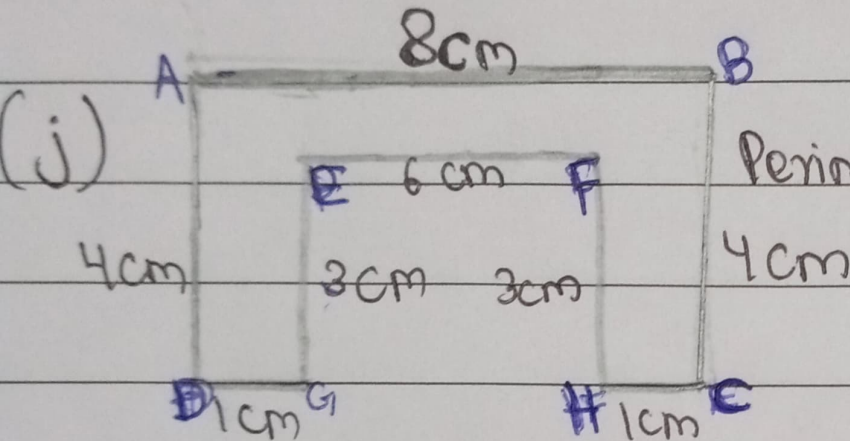 8cm
A B
(j)
E 6 cm F Perim
4cm 3cm 3cm 4cm
D 1cm G H 1cm C